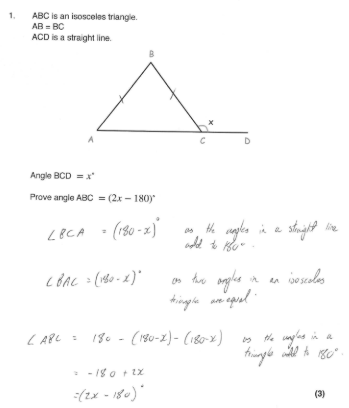 1. ABC is an isosceles triangle.
AB = BC
ACD is a straight line.
B
x
A C D
Angle BCD = x°
Prove angle ABC = (2x − 180)°
∠BCA = (180-x)° as the angles in a straight line
add to 180°.
∠BAC = (180-x)° as two angles in an isosceles
triangle are equal.
∠ABC = 180 - (180-x) - (180-x) as the angles in a
triangle add to 180°.
= -180 + 2x
= (2x - 180)°
(3)